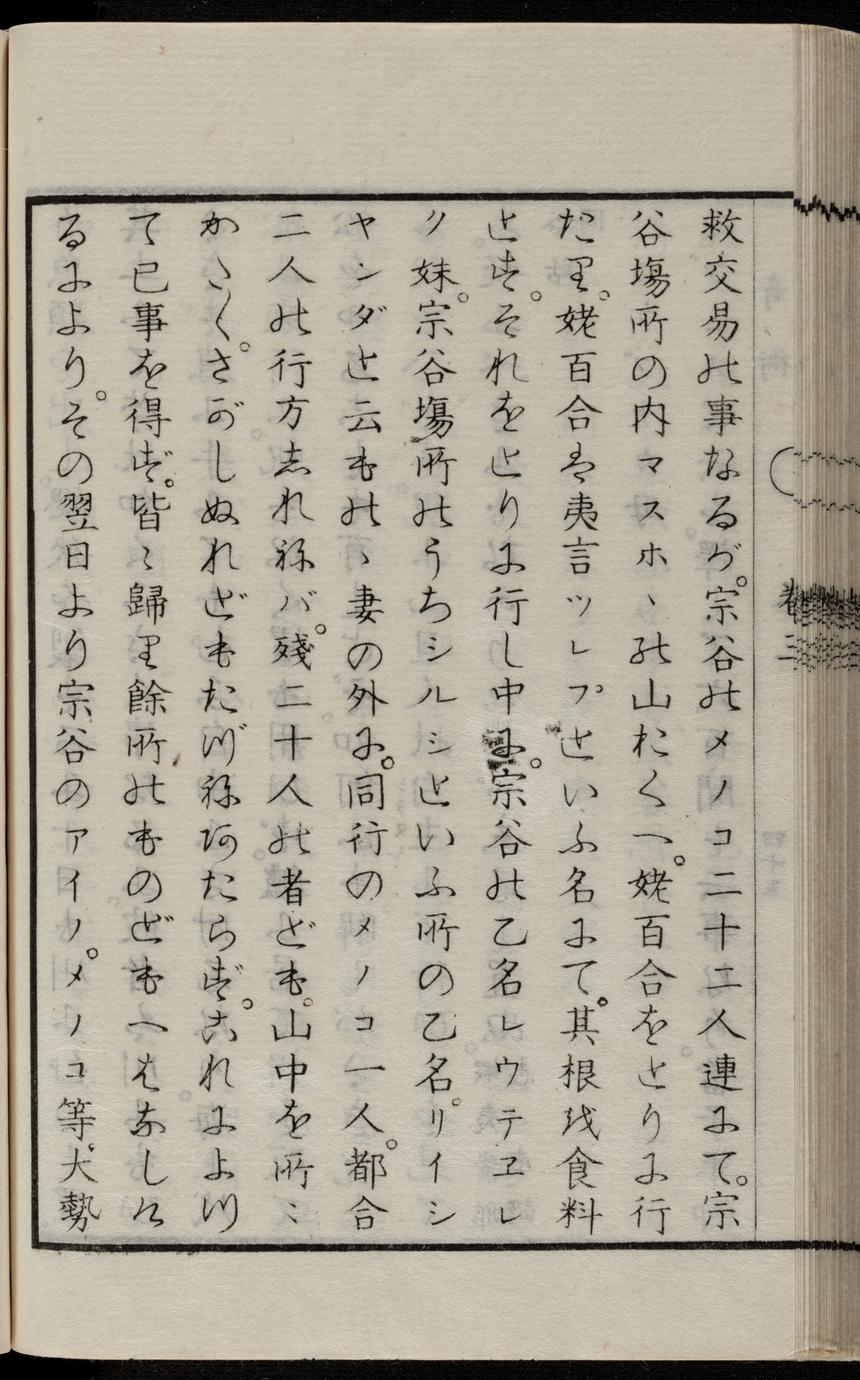 救交易の事なるが。宗谷のメノコ二十二人連にて。宗
谷場所の内マスホヽの山おくへ。姥百合をとりに行
たり。姥百合は夷言ツレプといふ名にて。其根を食料
とす。それをとりに行し中に。宗谷の乙名レウテヱレ
ク妹。宗谷場所のうちシルシといふ所の乙名。リイシ
ヤンダと云ものヽ妻の外に。同行のメノコ一人。都合
二人の行方しれねバ。残二十人の者ども。山中を所〻
かなたこなたさがしぬれどもたづねあたらず。これによつ
て已事を得ず。皆〻帰り余所のものどもへはなしけ
るによより。その翌日より宗谷のアイノ。メノコ等。大勢